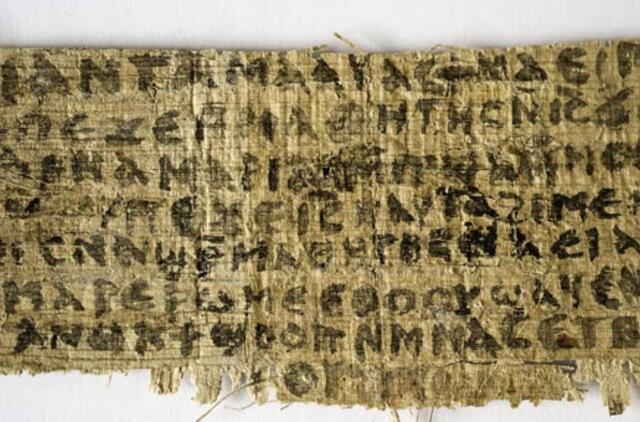 ⲁⲛ ⲧⲁⲙⲁⲁⲩ ⲁⲥϯ ⲛⲁⲉⲓ
ⲡⲉϫⲉ ⲙⲙⲁⲑⲏⲧⲏⲥ ⲛⲓⲥ
ⲁⲣⲛⲁ ⲙⲁⲣⲓⲁⲙ ⲙⲡϣⲁ ⲙⲙⲟ
ⲡⲉϫⲉ ⲓⲥ ⲛⲁⲩ ⲧⲁϩⲓⲙⲉ
ⲥⲛⲁϣⲣⲙⲁⲑⲏⲧⲏⲥ ⲛⲁⲉⲓ ⲁ
ⲙⲁⲣⲉⲣⲱⲙⲉ ⲉⲑⲟⲟⲩ ϣⲁϥⲉ
ⲁⲛⲟⲕ ϯϣⲟⲟⲡ ⲛⲙⲙⲁⲥ ⲉⲧⲃ